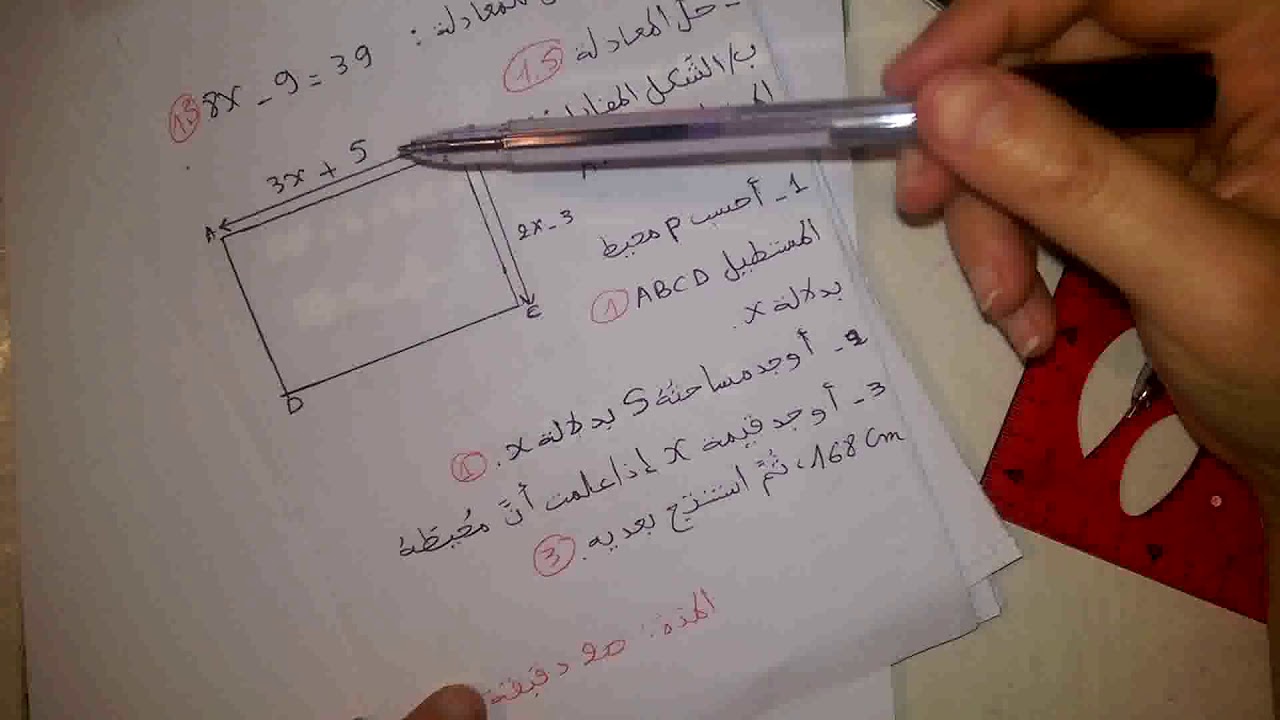 المعادلة :
8x - 9 = 39
1.5
- حل المعادلة
1.5
ب/ الشكل
3x + 5
A
2x - 3
C
D
1 - أحسب P محيط
المستطيل ABCD
1
بدلالة x.
2 - أوجد مساحته S بدلالة x.
1
3 - أوجد قيمة x إذا علمت أنَّ مُحيطَهُ
168 cm، ثُمَّ استنتج بعديه.
3
المدة: 20 دقيقة